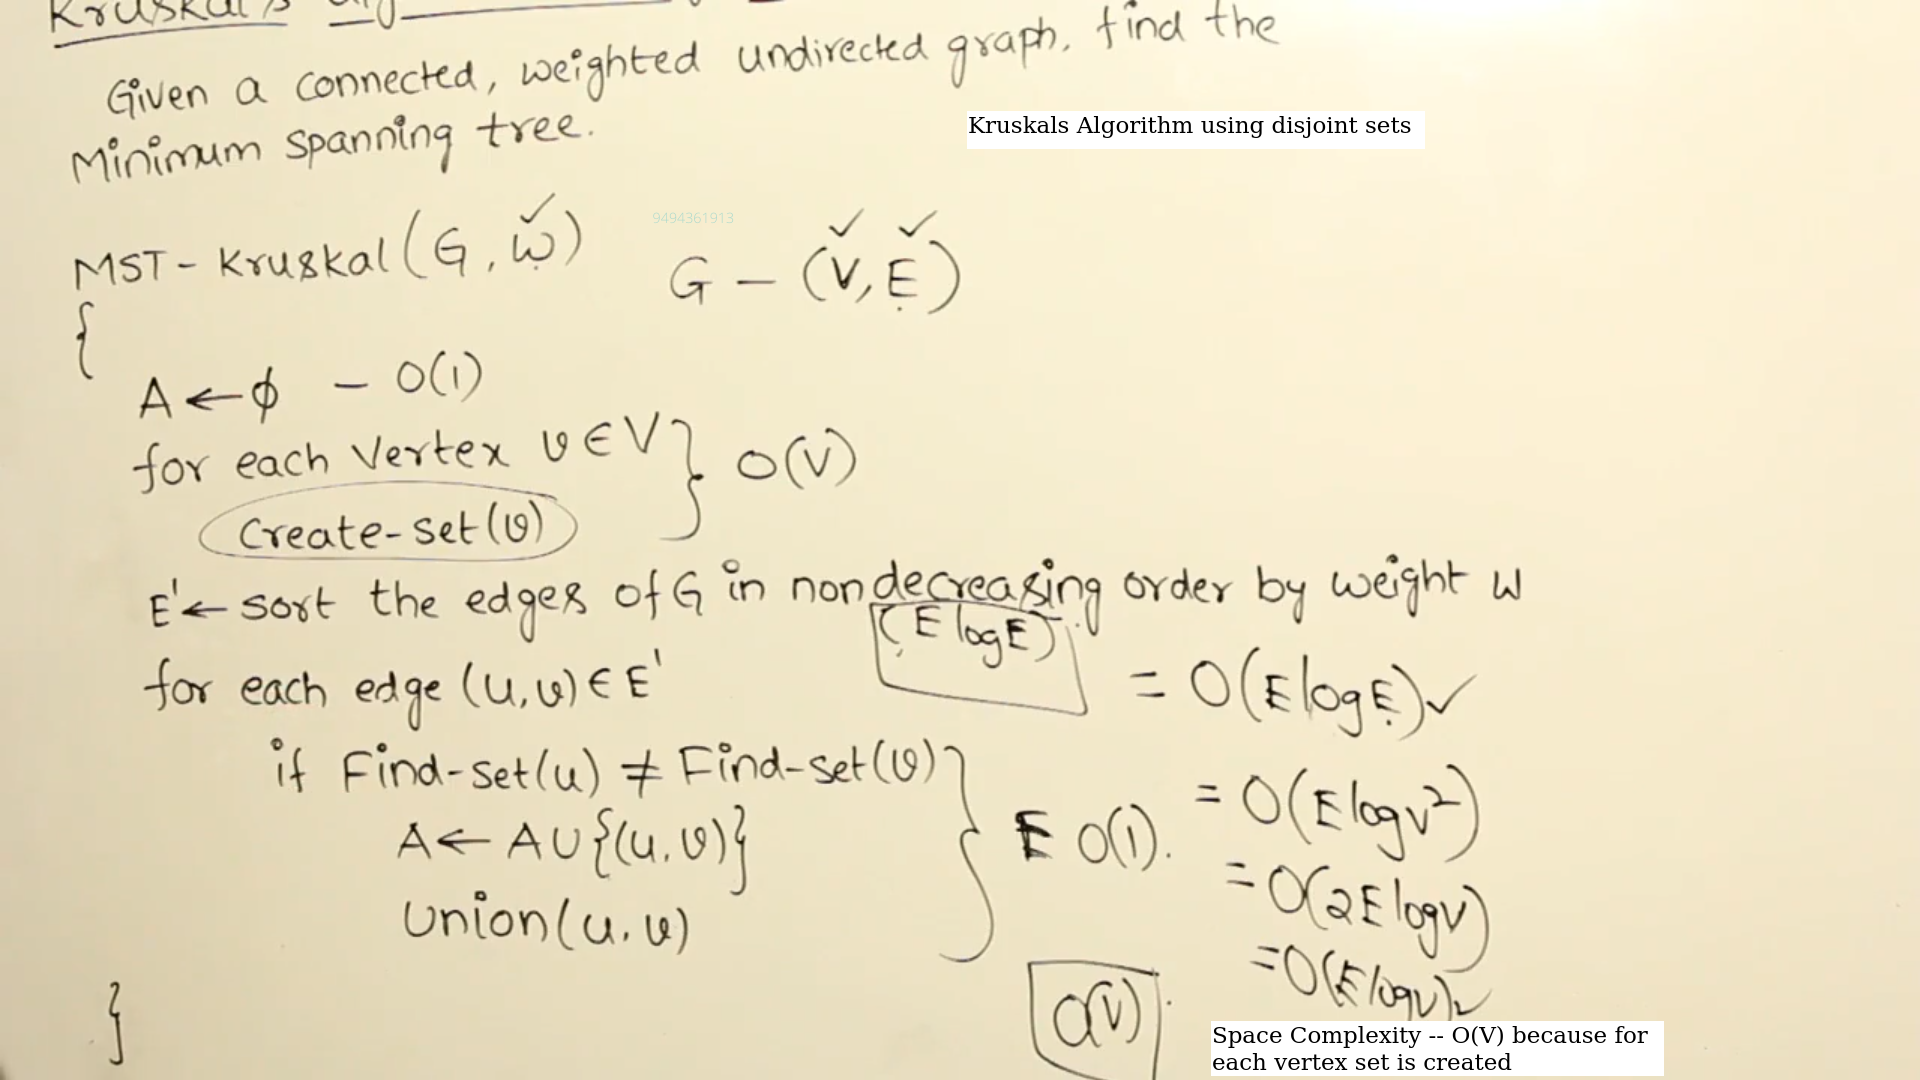 Kruskal's
Given a connected, weighted undirected graph, find the
Minimum spanning tree.
Kruskals Algorithm using disjoint sets
9494361913
MST - Kruskal (G, w) ✓
G - (V, E) ✓ ✓
{
A ← ϕ - O(1)
for each Vertex v ∈ V } O(V)
Create-set(v)
E' ← sort the edges of G in nondecreasing order by weight w
(E log E)
= O(E log E) ✓
for each edge (u, v) ∈ E'
if Find-set(u) ≠ Find-set(v)
A ← A ∪ {(u, v)} } E O(1).
Union(u, v)
= O(E log V²)
= O(2E log V)
= O(E log V) ✓
}
O(V)
Space Complexity -- O(V) because for
each vertex set is created